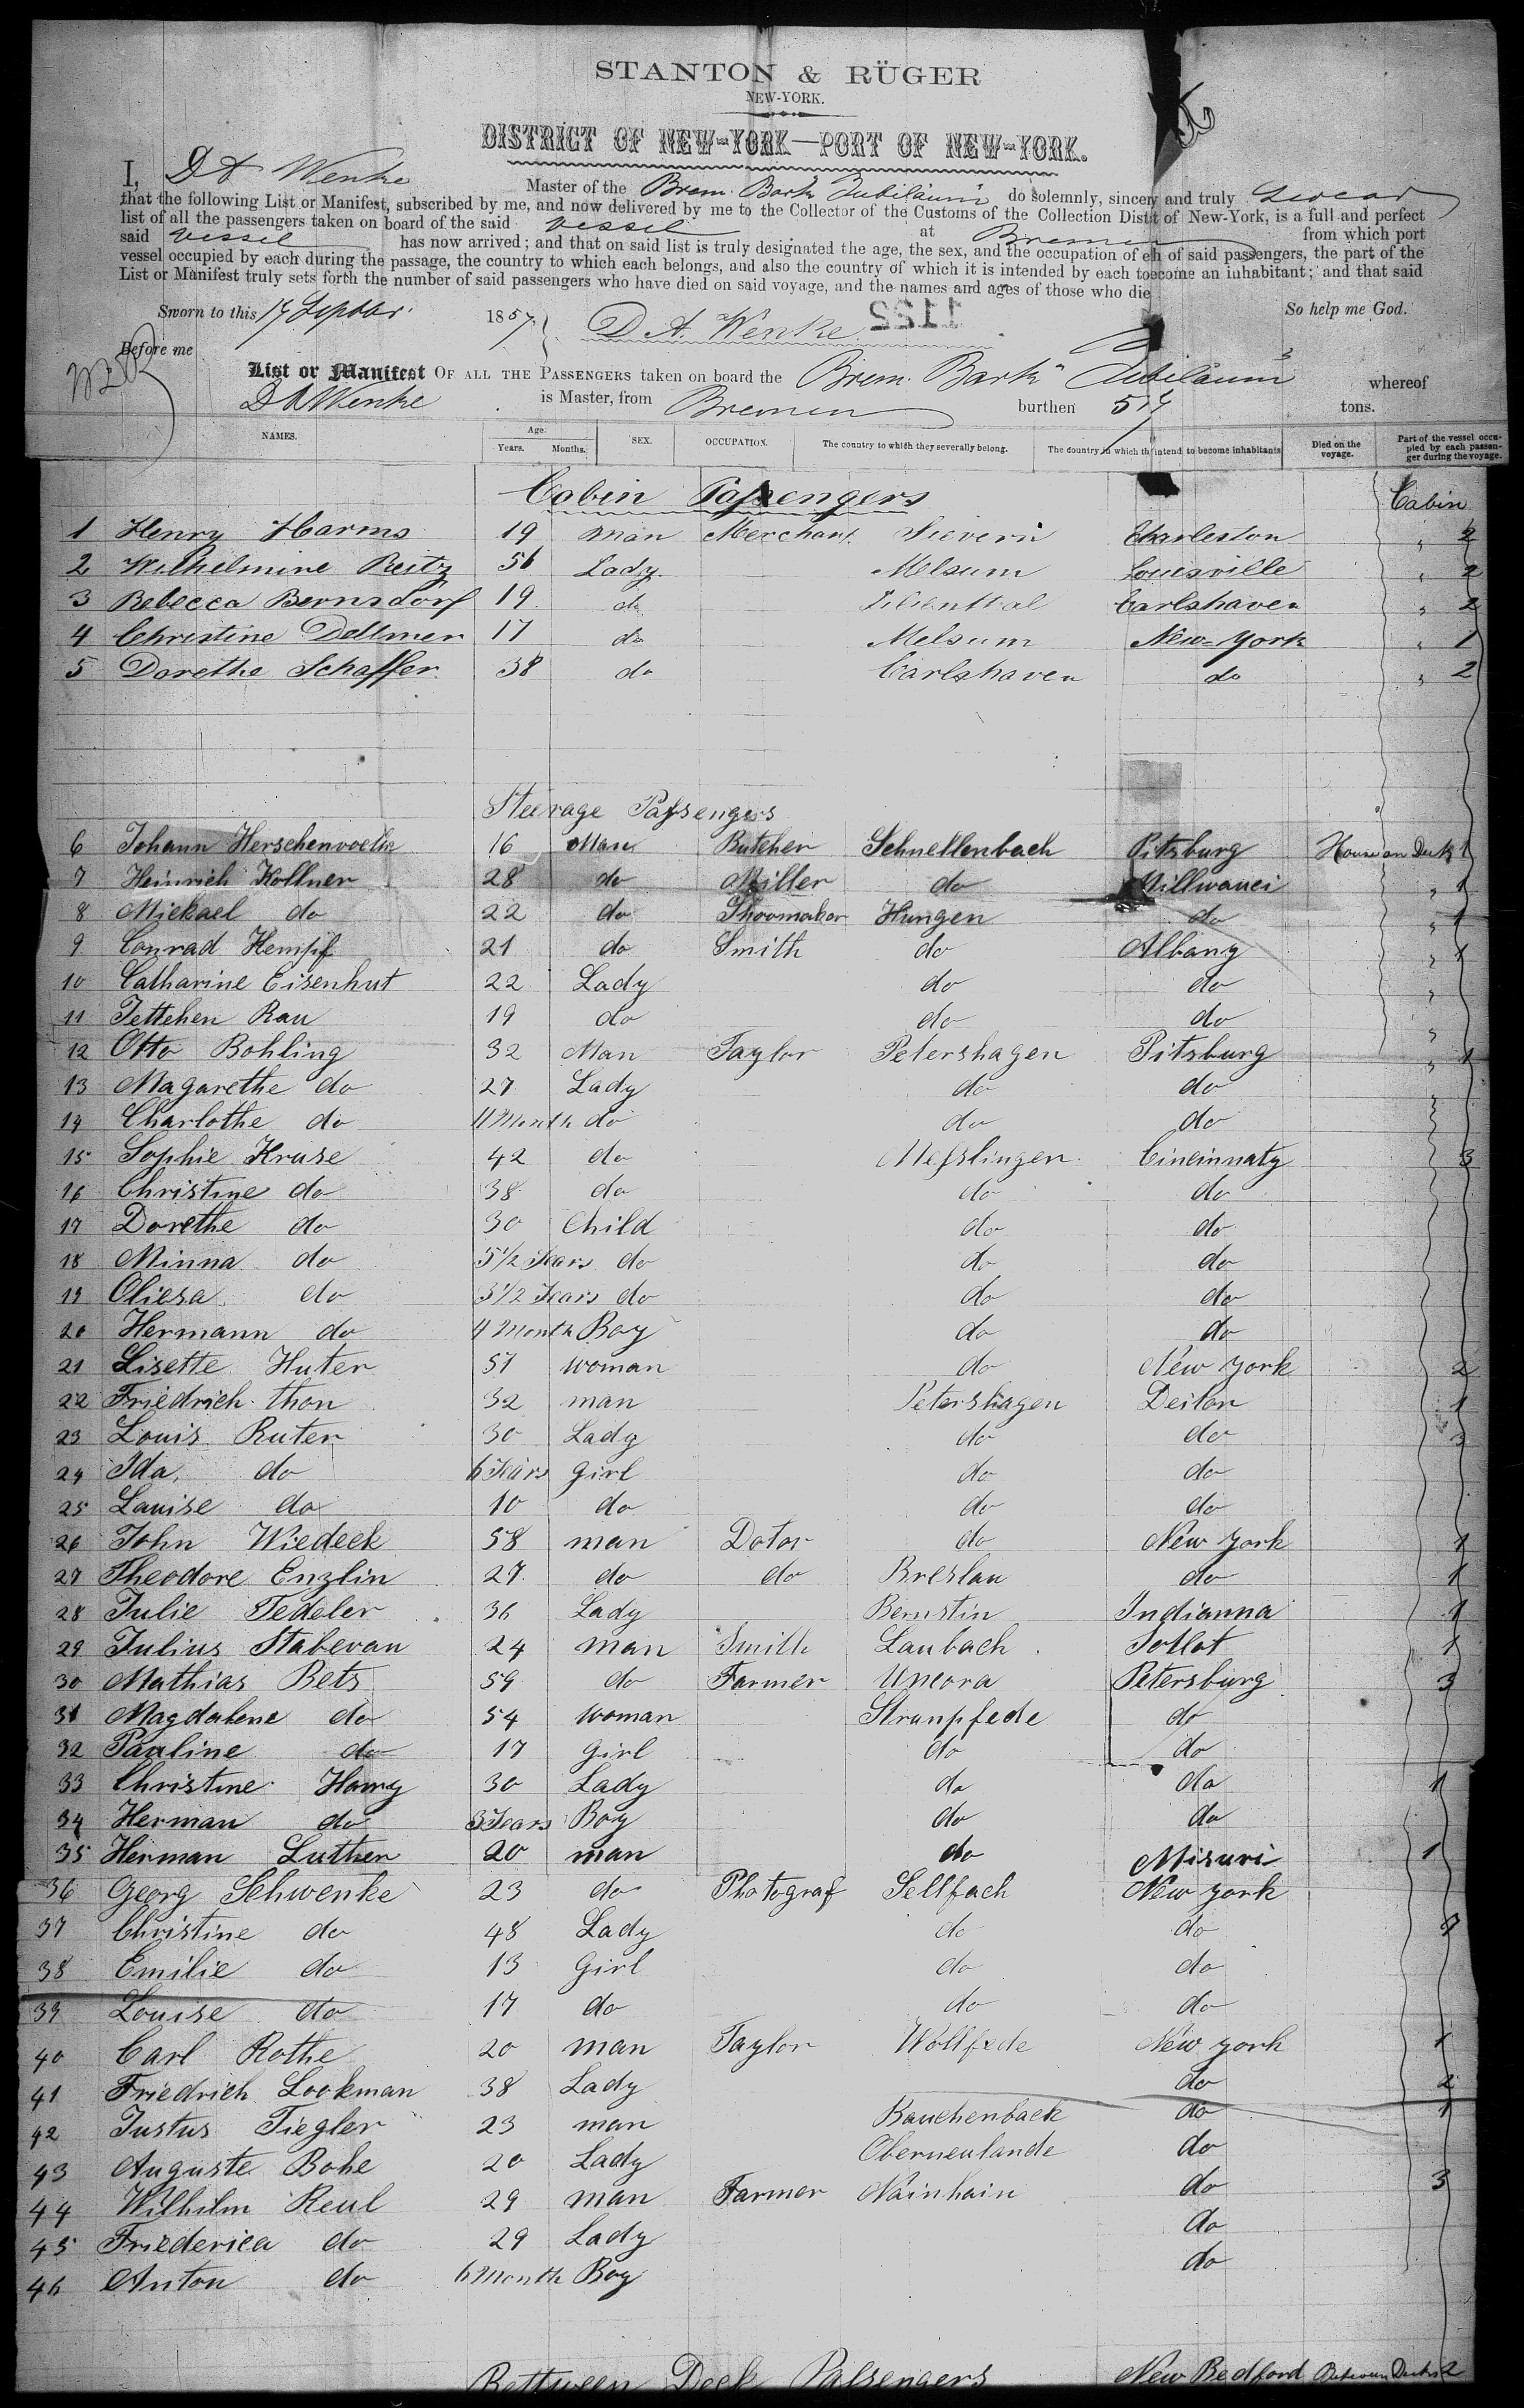 STANTON & RÜGER
NEW-YORK.
DISTRICT OF NEW-YORK—PORT OF NEW-YORK.
I, D A Wenke Master of the Brem. Bark "Jubiläum" do solemnly, sincerely and truly swear
that the following List or Manifest, subscribed by me, and now delivered by me to the Collector of the Customs of the Collection District of New-York, is a full and perfect
list of all the passengers taken on board of the said vessel at Bremen from which port
said vessel has now arrived; and that on said list is truly designated the age, the sex, and the occupation of each of said passengers, the part of the
vessel occupied by each during the passage, the country to which each belongs, and also the country of which it is intended by each to become an inhabitant; and that said
List or Manifest truly sets forth the number of said passengers who have died on said voyage, and the names and ages of those who die
Sworn to this 17 Septbr. 1857. D. A. Wenke 1122 So help me God.
Before me
List or Manifest OF ALL THE PASSENGERS taken on board the Brem. Bark "Jubiläum" whereof
D A Wenke is Master, from Bremen burthen 517 tons.
NAMES. Age. Years. Months. SEX. OCCUPATION. The country to which they severally belong. The country in which they intend to become inhabitants Died on the voyage. Part of the vessel occupied by each passenger during the voyage.
Cabin Passengers Cabin
1 Henry Harms 19 man Merchant Sievern Charleston " 2
2 Wilhelmine Reitz 56 Lady Melsum Louesville " 2
3 Rebecca Bernsdorf 19 do Lilienthal Carlshaven " 2
4 Christine Dellmer 17 do Melsum New-York " 1
5 Dorethe Schaffer 38 do Carlshaven do " 2
Steerage Passengers
6 Johann Herschenroeth 16 Man Butcher Schnellenbach Pitsburg House on Deck 1
7 Heinrich Kollner 28 do Miller do Millwauci " 1
8 Mickael do 22 do Shoomaker Hungen do " 1
9 Conrad Hempf 21 do Smith do Albany " 1
10 Catharine Eisenhut 22 Lady do do "
11 Jettchen Rau 19 do do do "
12 Otto Bohling 32 Man Taylor Petershagen Pitsburg " 1
13 Magarethe do 27 Lady do do
14 Charlothe do 11 Month do do do
15 Sophie Kruse 42 do Messlingen Cincinnaty 3
16 Christine do 38 do do do
17 Dorethe do 30 Child do do
18 Minna do 5 1/2 Years do do do
19 Oliesa do 3 1/2 Years do do do
20 Hermann do 4 Month Boy do do
21 Lisette Huter 51 woman do New York 2
22 Friedrich thon 32 man Petershagen Deiton 1
23 Louis Ruter 30 Lady do do 3
24 Ida do 6 Years girl do do
25 Lauise do 10 do do do
26 John Wiedeck 58 man Dotor do New York 1
27 Theodore Enzlin 27 do do Breslau do 1
28 Julie Tedeler 36 Lady Bernstin Indianna 1
29 Julius Stabevan 24 man Smith Laubach 1
30 Mathias Bets 59 do Farmer Petersburg 3
31 Magdalene do 54 woman Strunpfede do
32 Pauline do 17 girl do do
33 Christine Hamy 30 Lady do do 1
34 Herman do 3 Years Boy do do
35 Herman Luther 20 man do Misuri 1
36 Georg Schwenke 23 do Photograf Sellfach New York
37 Christine do 48 Lady do do
38 Emilie do 13 Girl do do
39 Louise do 17 do do do
40 Carl Rothe 20 man Taylor Wollfede New york 1
41 Friedrich Lookman 38 Lady do 2
42 Justus Tiegler 23 man Bauchenback do 1
43 Auguste Bohe 20 Lady Oberneulande do
44 Wilhilm Reul 29 man Farmer Nainhain do 3
45 Friederica do 29 Lady do
46 Anton do 6 Month Boy do
Bettween Deck Passengers New Bedford Between Decks 2